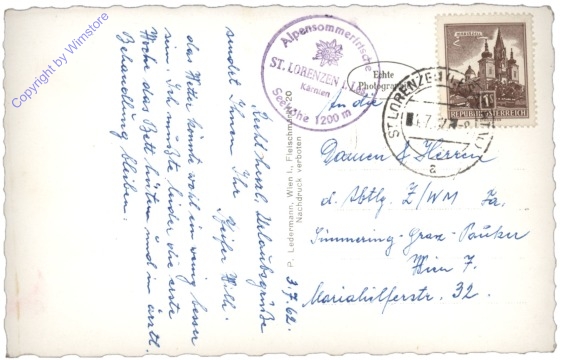 Copyright by Wimstore
3.7.62.
Recht herzl. Urlaubsgrüße
sendet Ihnen Ihr
das Wetter könnte wohl ein wenig besser
sein. Ich mußte leider die erste
Woche das Bett hüten und in ärztl.
Behandlung bleiben.
Alpensommerfrische
ST. LORENZEN
Kärnten
Seehöhe 1200 m
Echte
P. Ledermann, Wien I., Fleischmarkt 20
Nachdruck verboten
MARIAZELL
REPUBLIK ÖSTERREICH
ST. LORENZEN
a
An die
Damen & Herren
d. Abtlg. Z/WM Fa.
Simmering-Graz-Pauker
Wien 7.
Mariahilferstr. 32.